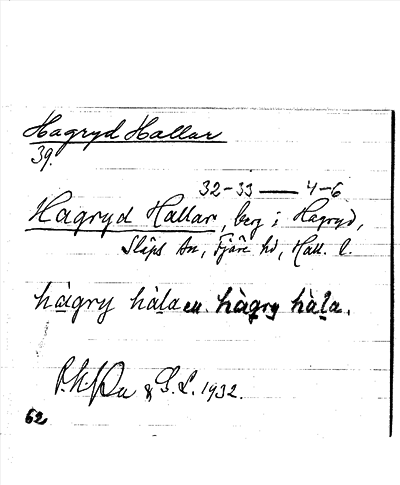 Hagryd Hallar
39.
32-33 — 4-6
Hagryd Hallar, berg i Hagryd,
Släps sn, Fjäre hd, Hall. l.
hàgry hàla el. hàgry hàla.
& G. L. 1932.
62